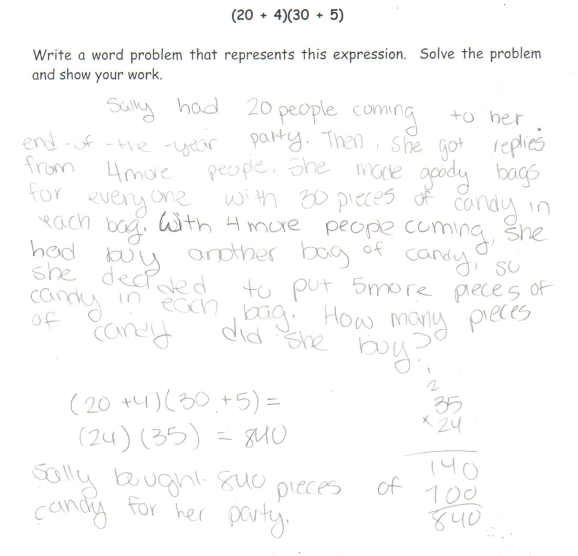 (20 + 4)(30 + 5)
Write a word problem that represents this expression. Solve the problem
and show your work.
Sally had 20 people coming to her
end-of-the-year party. Then, she got replies
from 4 more people. She made goody bags
for everyone with 30 pieces of candy in
each bag. With 4 more people coming, she
had buy another bag of candy, so
she decided to put 5 more pieces of
candy in each bag. How many pieces
of candy did she buy?
(20 + 4)(30 + 5) =
(24)(35) = 840
Sally bought 840 pieces of
candy for her party.
2
35
× 24
140
700
840